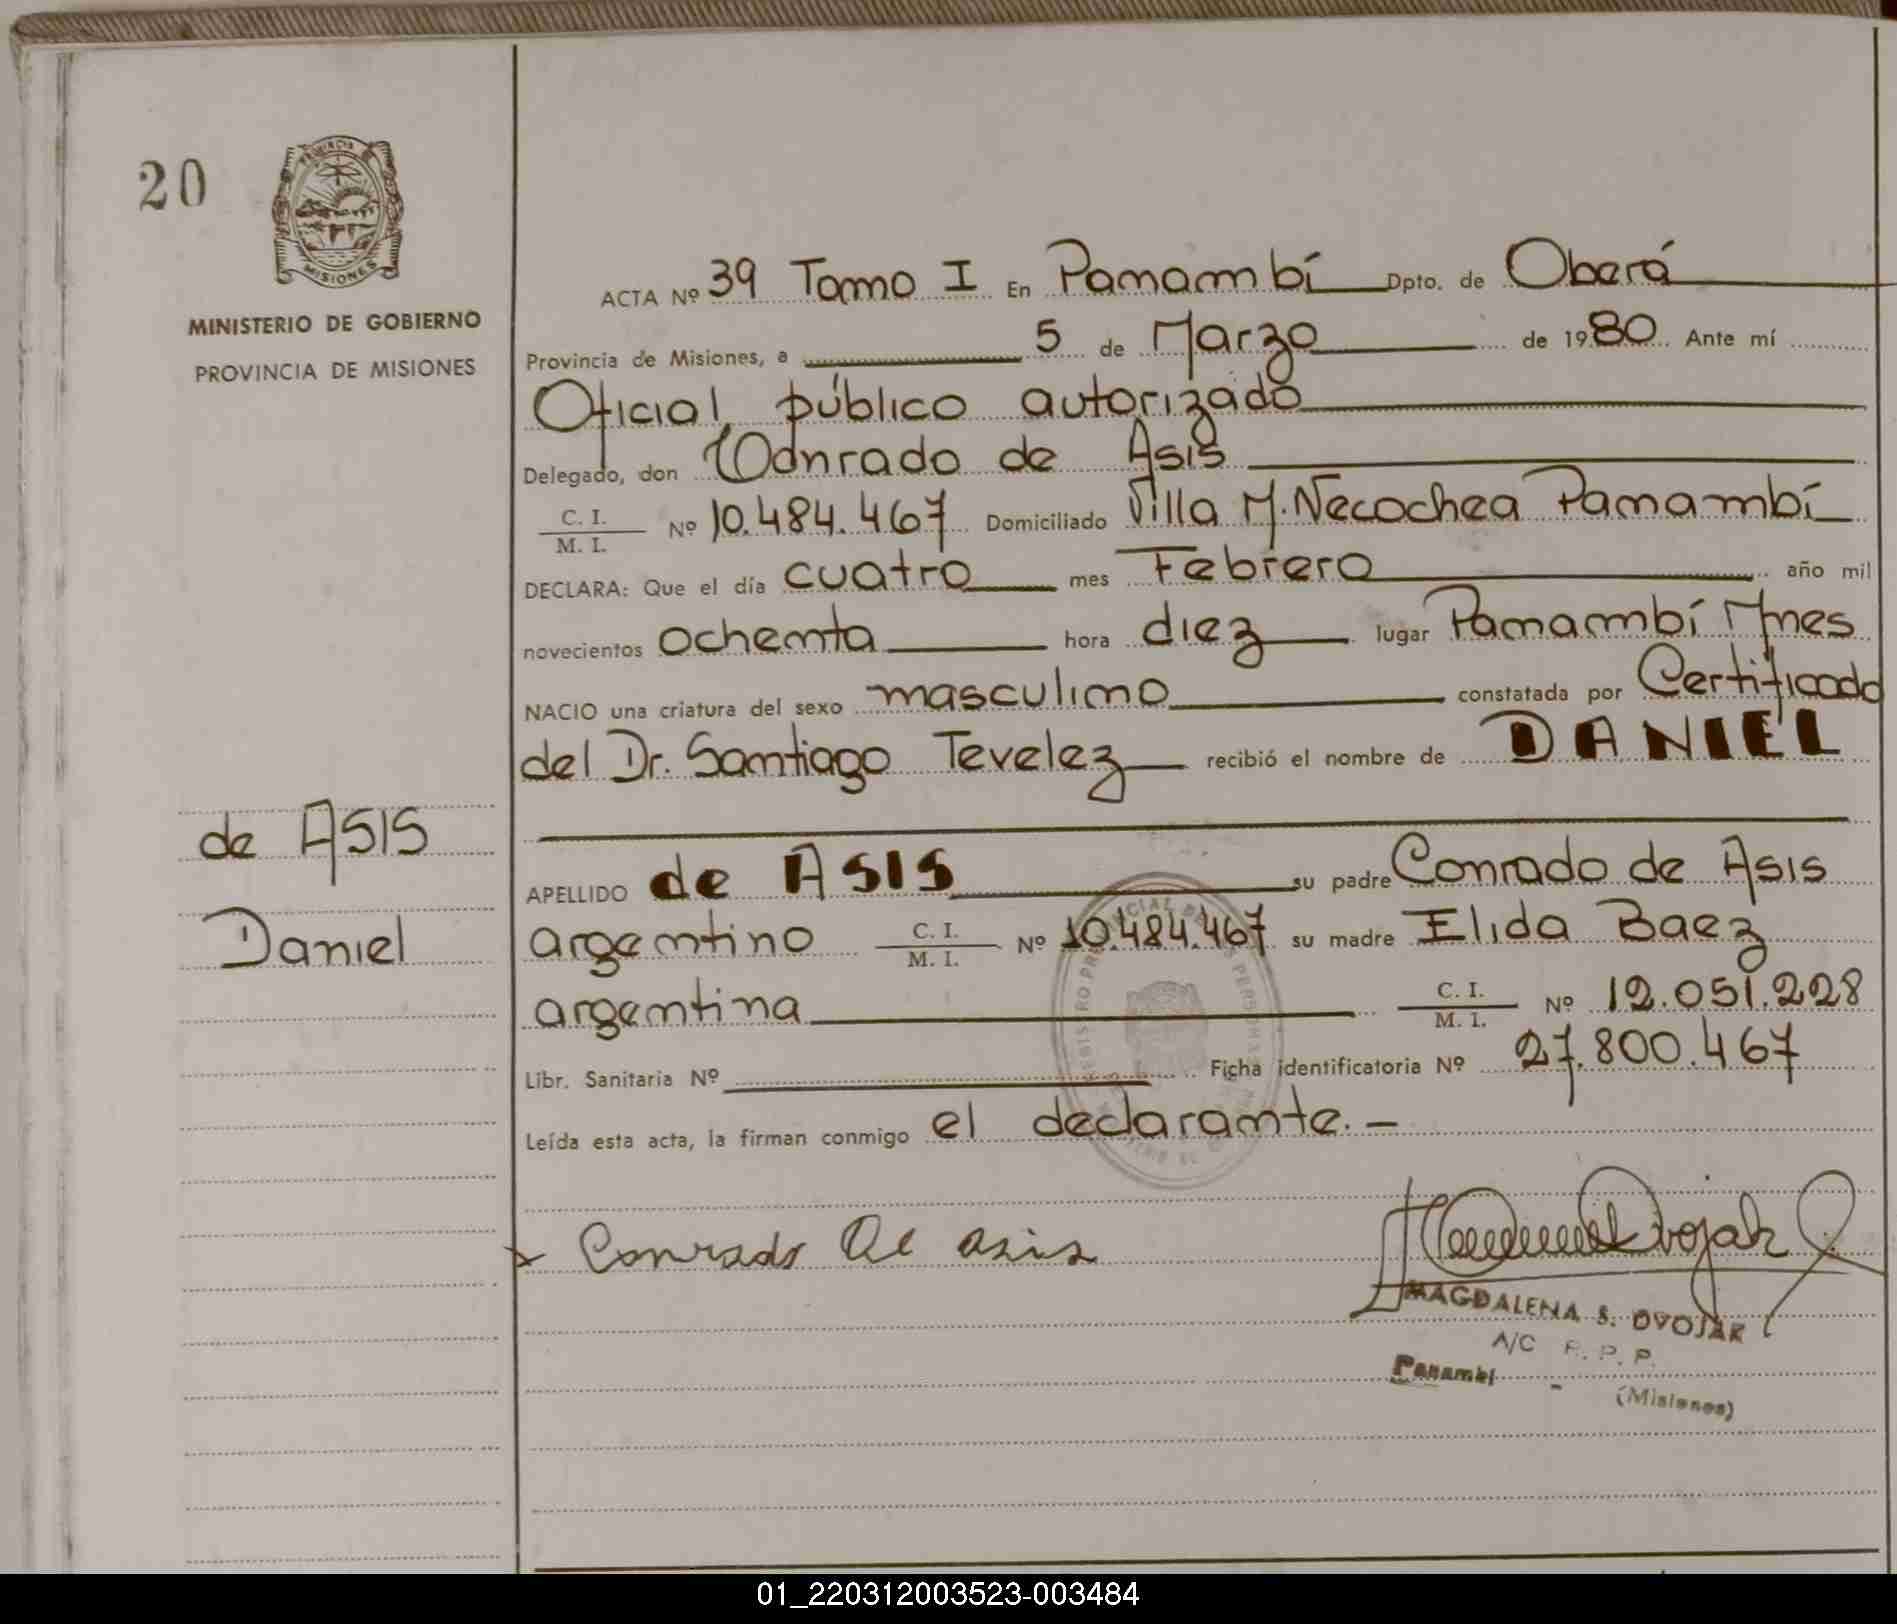 20
PROVINCIA
MISIONES
MINISTERIO DE GOBIERNO
PROVINCIA DE MISIONES
ACTA Nº 39 Tomo I En Panambí Dpto. de Oberá
Provincia de Misiones, a 5 de Marzo de 1980 Ante mí
Oficial público autorizado
Delegado, don Conrado de Asis
C. I.
M. I. Nº 10.484.467 Domiciliado Villa M. Necochea Panambí
DECLARA: Que el día cuatro mes Febrero año mil
novecientos ochenta hora diez lugar Panambí Mnes
NACIO una criatura del sexo masculino constatada por Certificado
del Dr. Santiago Tevelez recibió el nombre de DANIEL
de ASIS
Daniel
APELLIDO de ASIS su padre Conrado de Asis
argentino C. I.
M. I. Nº 10.484.467 su madre Elida Baez
argentina C. I.
M. I. Nº 12.051.228
Libr. Sanitaria Nº Ficha identificatoria Nº 27.800.467
Leída esta acta, la firman conmigo el declarante.-
x Conrado de asis
MAGDALENA S. DVOJAK
A/C R. P. P.
Panambí - (Misiones)
01_220312003523-003484